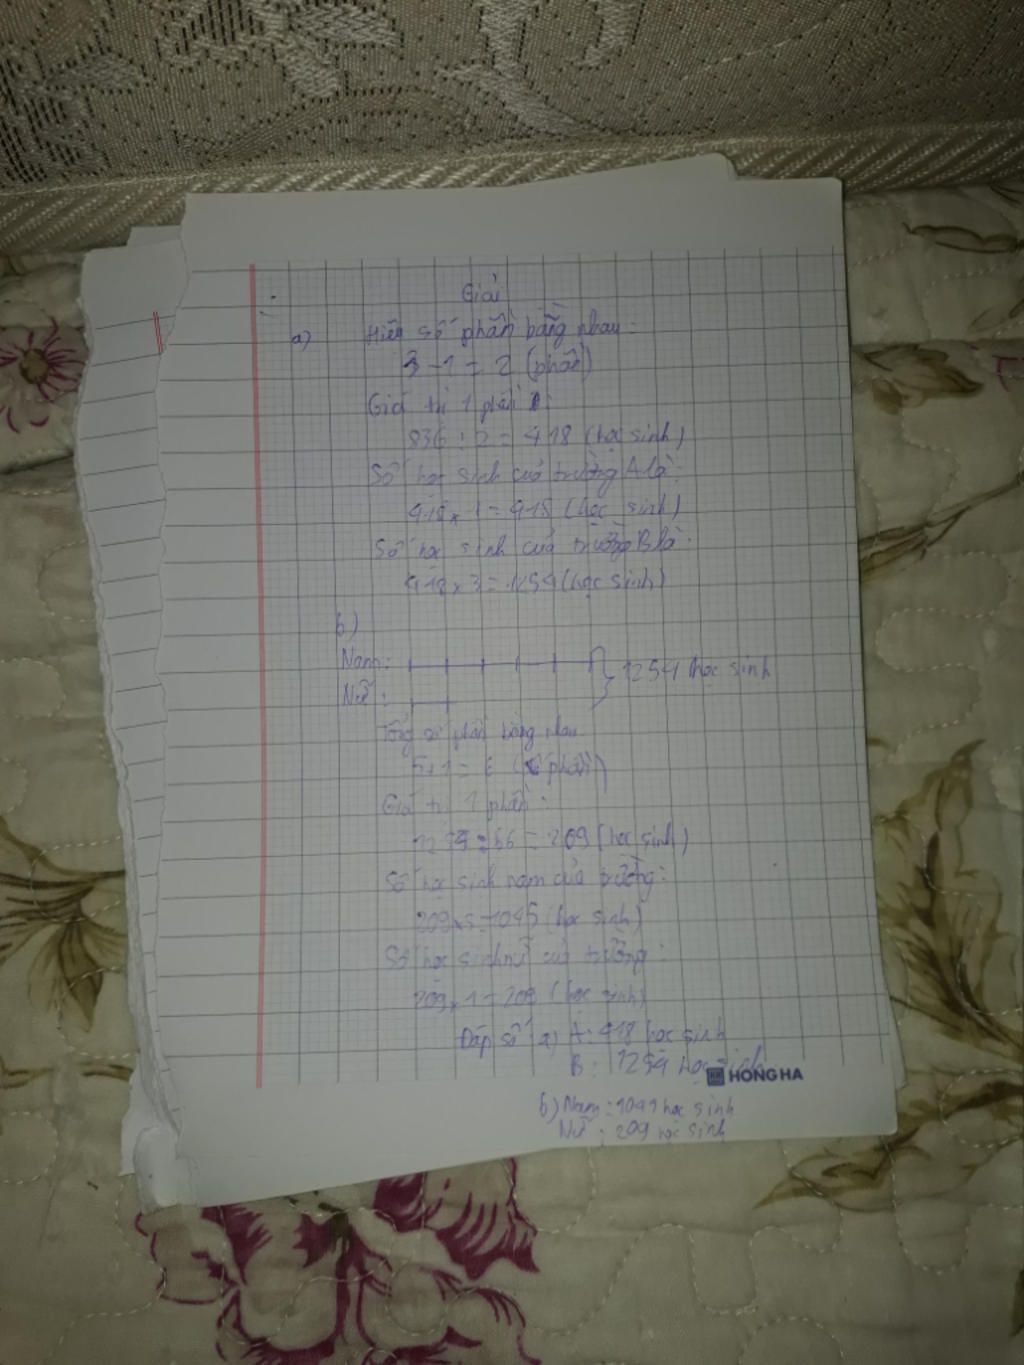 Giải
a) Hiệu số phần bằng nhau:
3 - 1 = 2 (phần)
Giá trị 1 phần:
836 : 2 = 418 (học sinh)
Số học sinh của trường A là:
418 x 1 = 418 (học sinh)
Số học sinh của trường B là:
418 x 3 = 1254 (học sinh)
b)
Nam: 1254 học sinh
Nữ:
Tổng số phần bằng nhau
5+1 = 6 (phần)
Giá trị 1 phần:
= 209 (học sinh)
Số học sinh nam của trường:
209 x 5 = 1045 (học sinh)
Số học sinh nữ của trường:
209 x 1 = 209 (học sinh)
Đáp số a) A: 418 học sinh
B: 1254 học sinh
HONG HA
b) Nam: học sinh
Nữ: 209 học sinh